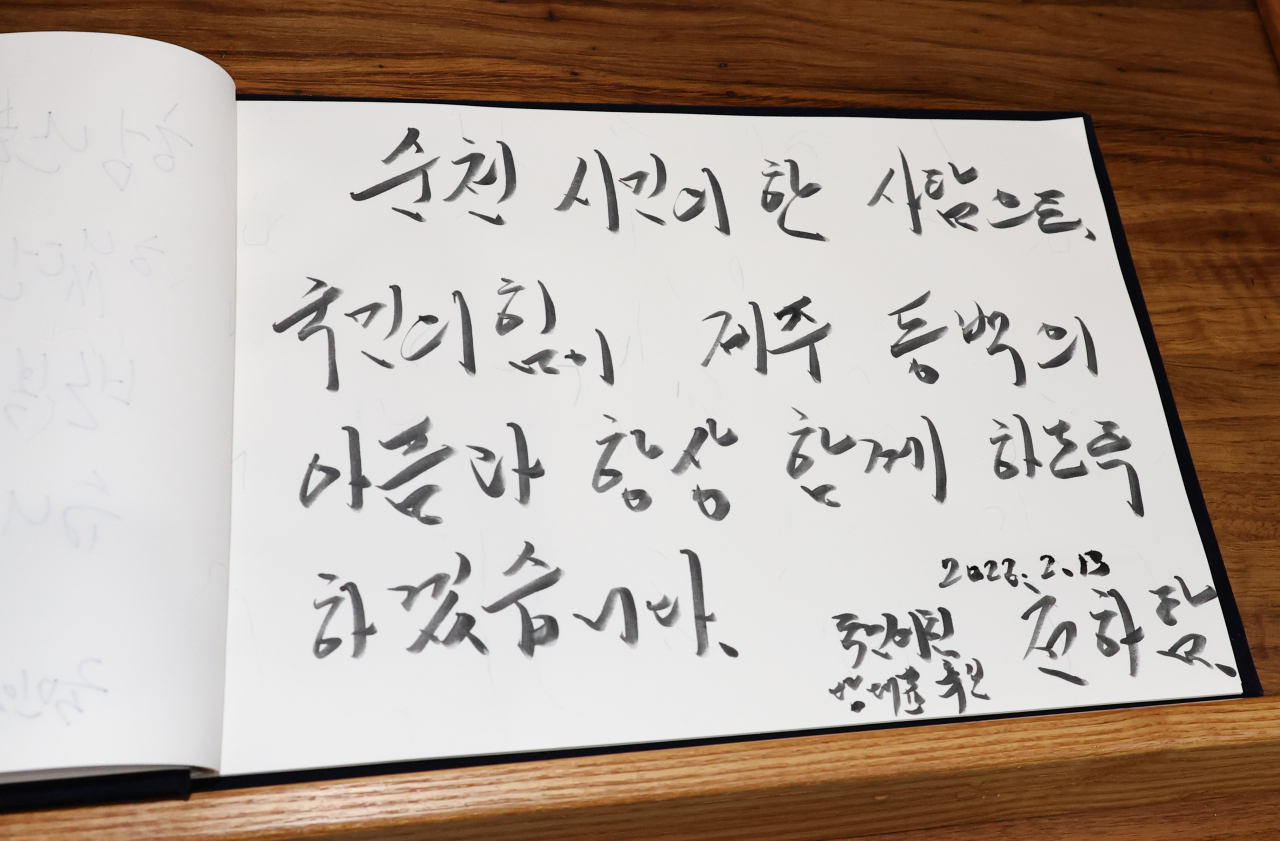 순천 시민의 한 사람으로,
국민의힘이 제주 동백의
아픔과 항상 함께 하도록
하겠습니다.
2023. 2. 13
국민의힘 천하람
당대표 후보